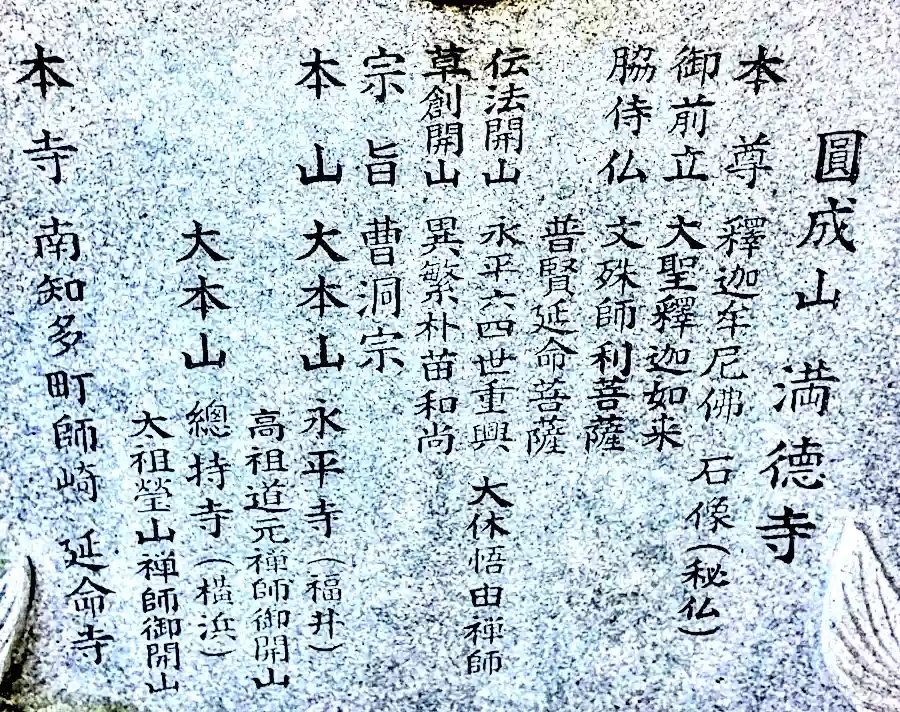 圓成山 満徳寺
本尊 釋迦牟尼佛 石像（秘仏）
御前立 大聖釋迦如来
脇侍仏 文殊師利菩薩
普賢延命菩薩
伝法開山 永平六四世重興 大休悟由禅師
草創開山 異繁朴苗和尚
宗旨 曹洞宗
本山 大本山 永平寺（福井）
高祖道元禅師御開山
大本山 總持寺（横浜）
太祖瑩山禅師御開山
本寺 南知多町師崎 延命寺